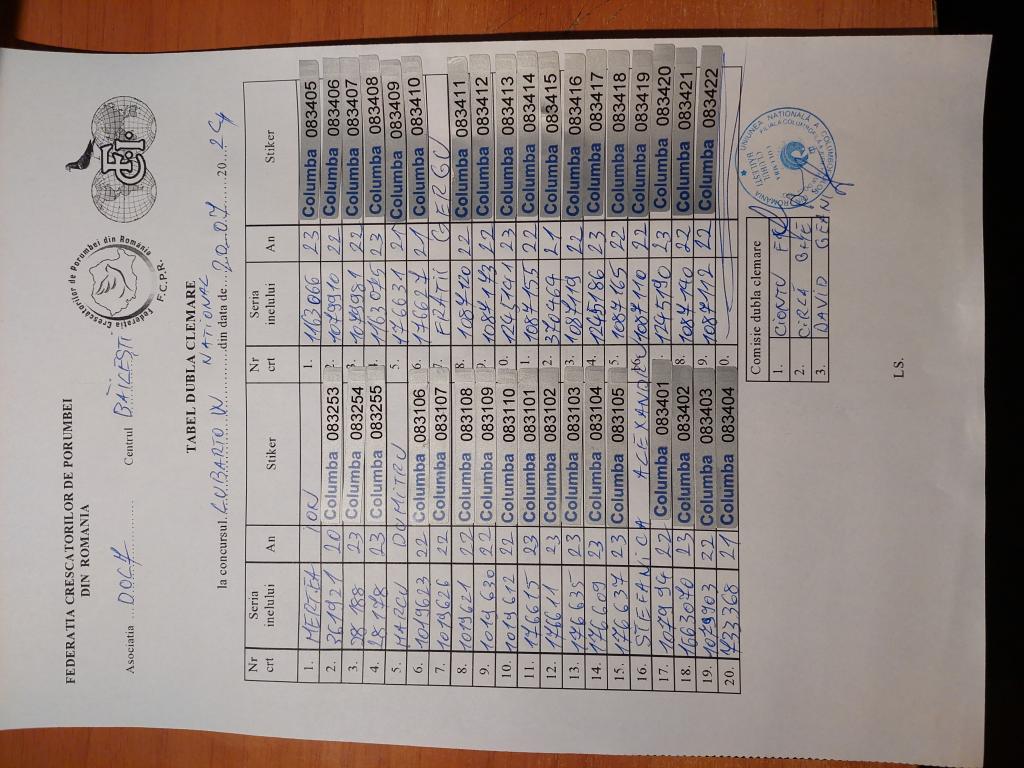 FEDERATIA CRESCATORILOR DE PORUMBEI
DIN ROMANIA
Federatia Crescatorilor de Porumbei din România
F.C.P.R.
Asociatia ....DOLJ............ Centrul BĂILEȘTI
TABEL DUBLA CLEMARE
NATIONAL
la concursul.LUBARTOW..........din data de....20.07.......20...24
Nr crt Seria inelului An Stiker Nr crt Seria inelului An Stiker
1. MERTEA ION 1. 1163066 23 Columba 083405
2. 361921 20 Columba 083253 2. 1079910 22 Columba 083406
3. 28188 23 Columba 083254 3. 1079981 22 Columba 083407
4. 28178 23 Columba 083255 4. 1163075 23 Columba 083408
5. MARCU DUMITRU 5. 176631 21 Columba 083409
6. 1019623 22 Columba 083106 6. 176627 21 Columba 083410
7. 1019626 22 Columba 083107 FRATII GERGU
8. 1019621 22 Columba 083108 8. 1087120 22 Columba 083411
9. 1019630 22 Columba 083109 9. 1087173 22 Columba 083412
10. 1019612 22 Columba 083110 0. 1245141 23 Columba 083413
11. 176615 23 Columba 083101 1. 1087155 22 Columba 083414
12. 176611 23 Columba 083102 2. 370464 21 Columba 083415
13. 176635 23 Columba 083103 3. 1087119 22 Columba 083416
14. 176609 23 Columba 083104 4. 1245186 23 Columba 083417
15. 176637 23 Columba 083105 5. 1087165 22 Columba 083418
16. STEFANICA ALEXANDRU 6. 1087110 22 Columba 083419
17. 1079994 22 Columba 083401 1245190 23 Columba 083420
18. 1663070 23 Columba 083402 8. 1087140 22 Columba 083421
19. 1079903 22 Columba 083403 9. 1087112 22 Columba 083422
20. 733368 21 Columba 083404 0.
Comisie dubla clemare
1. CIONTU
2. CIRCĂ ILIE
3. DAVID GEANI
ROMANIA
UNIUNEA NATIONALĂ A
LS.